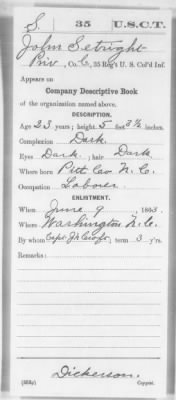 S. 35 U.S.C.T.
John Setright
Priv, Co. C, 35 Reg't U.S. Col'd Inf.
Appears on
Company Descriptive Book
of the organization named above.
DESCRIPTION.
Age 23 years; height 5 feet 3¾ inches.
Complexion Dark.
Eyes Dark; hair Dark
Where born Pitt Co. N.C.
Occupation Laborer
ENLISTMENT.
When June 9, 1863.
Where Washington N.C.
By whom Capt. J.N. Croft; term 3 y'rs.
Remarks:
Dickerson.
Copyist.